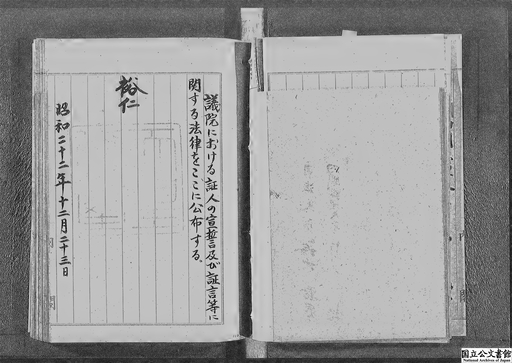 議院における証人の宣誓及び証言等に
関する法律をここに公布する。
裕仁
昭和二十二年十二月二十三日
国立公文書館
National Archives of Japan